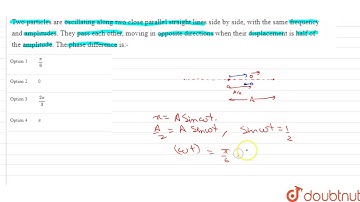 Two particles are oscillating along two close parallel straight lines side by side, with the same frequency
and amplitudes. They pass each other, moving in opposite directions when their displacement is half of
the amplitude. The phase difference is:-
Option 1 π/6
Option 2 0
Option 3 2π/3
Option 4 π
A/2
A
x = A Sinωt.
A/2 = A Sinωt, Sinωt = 1/2
(ωt) = π/6
doubtnut